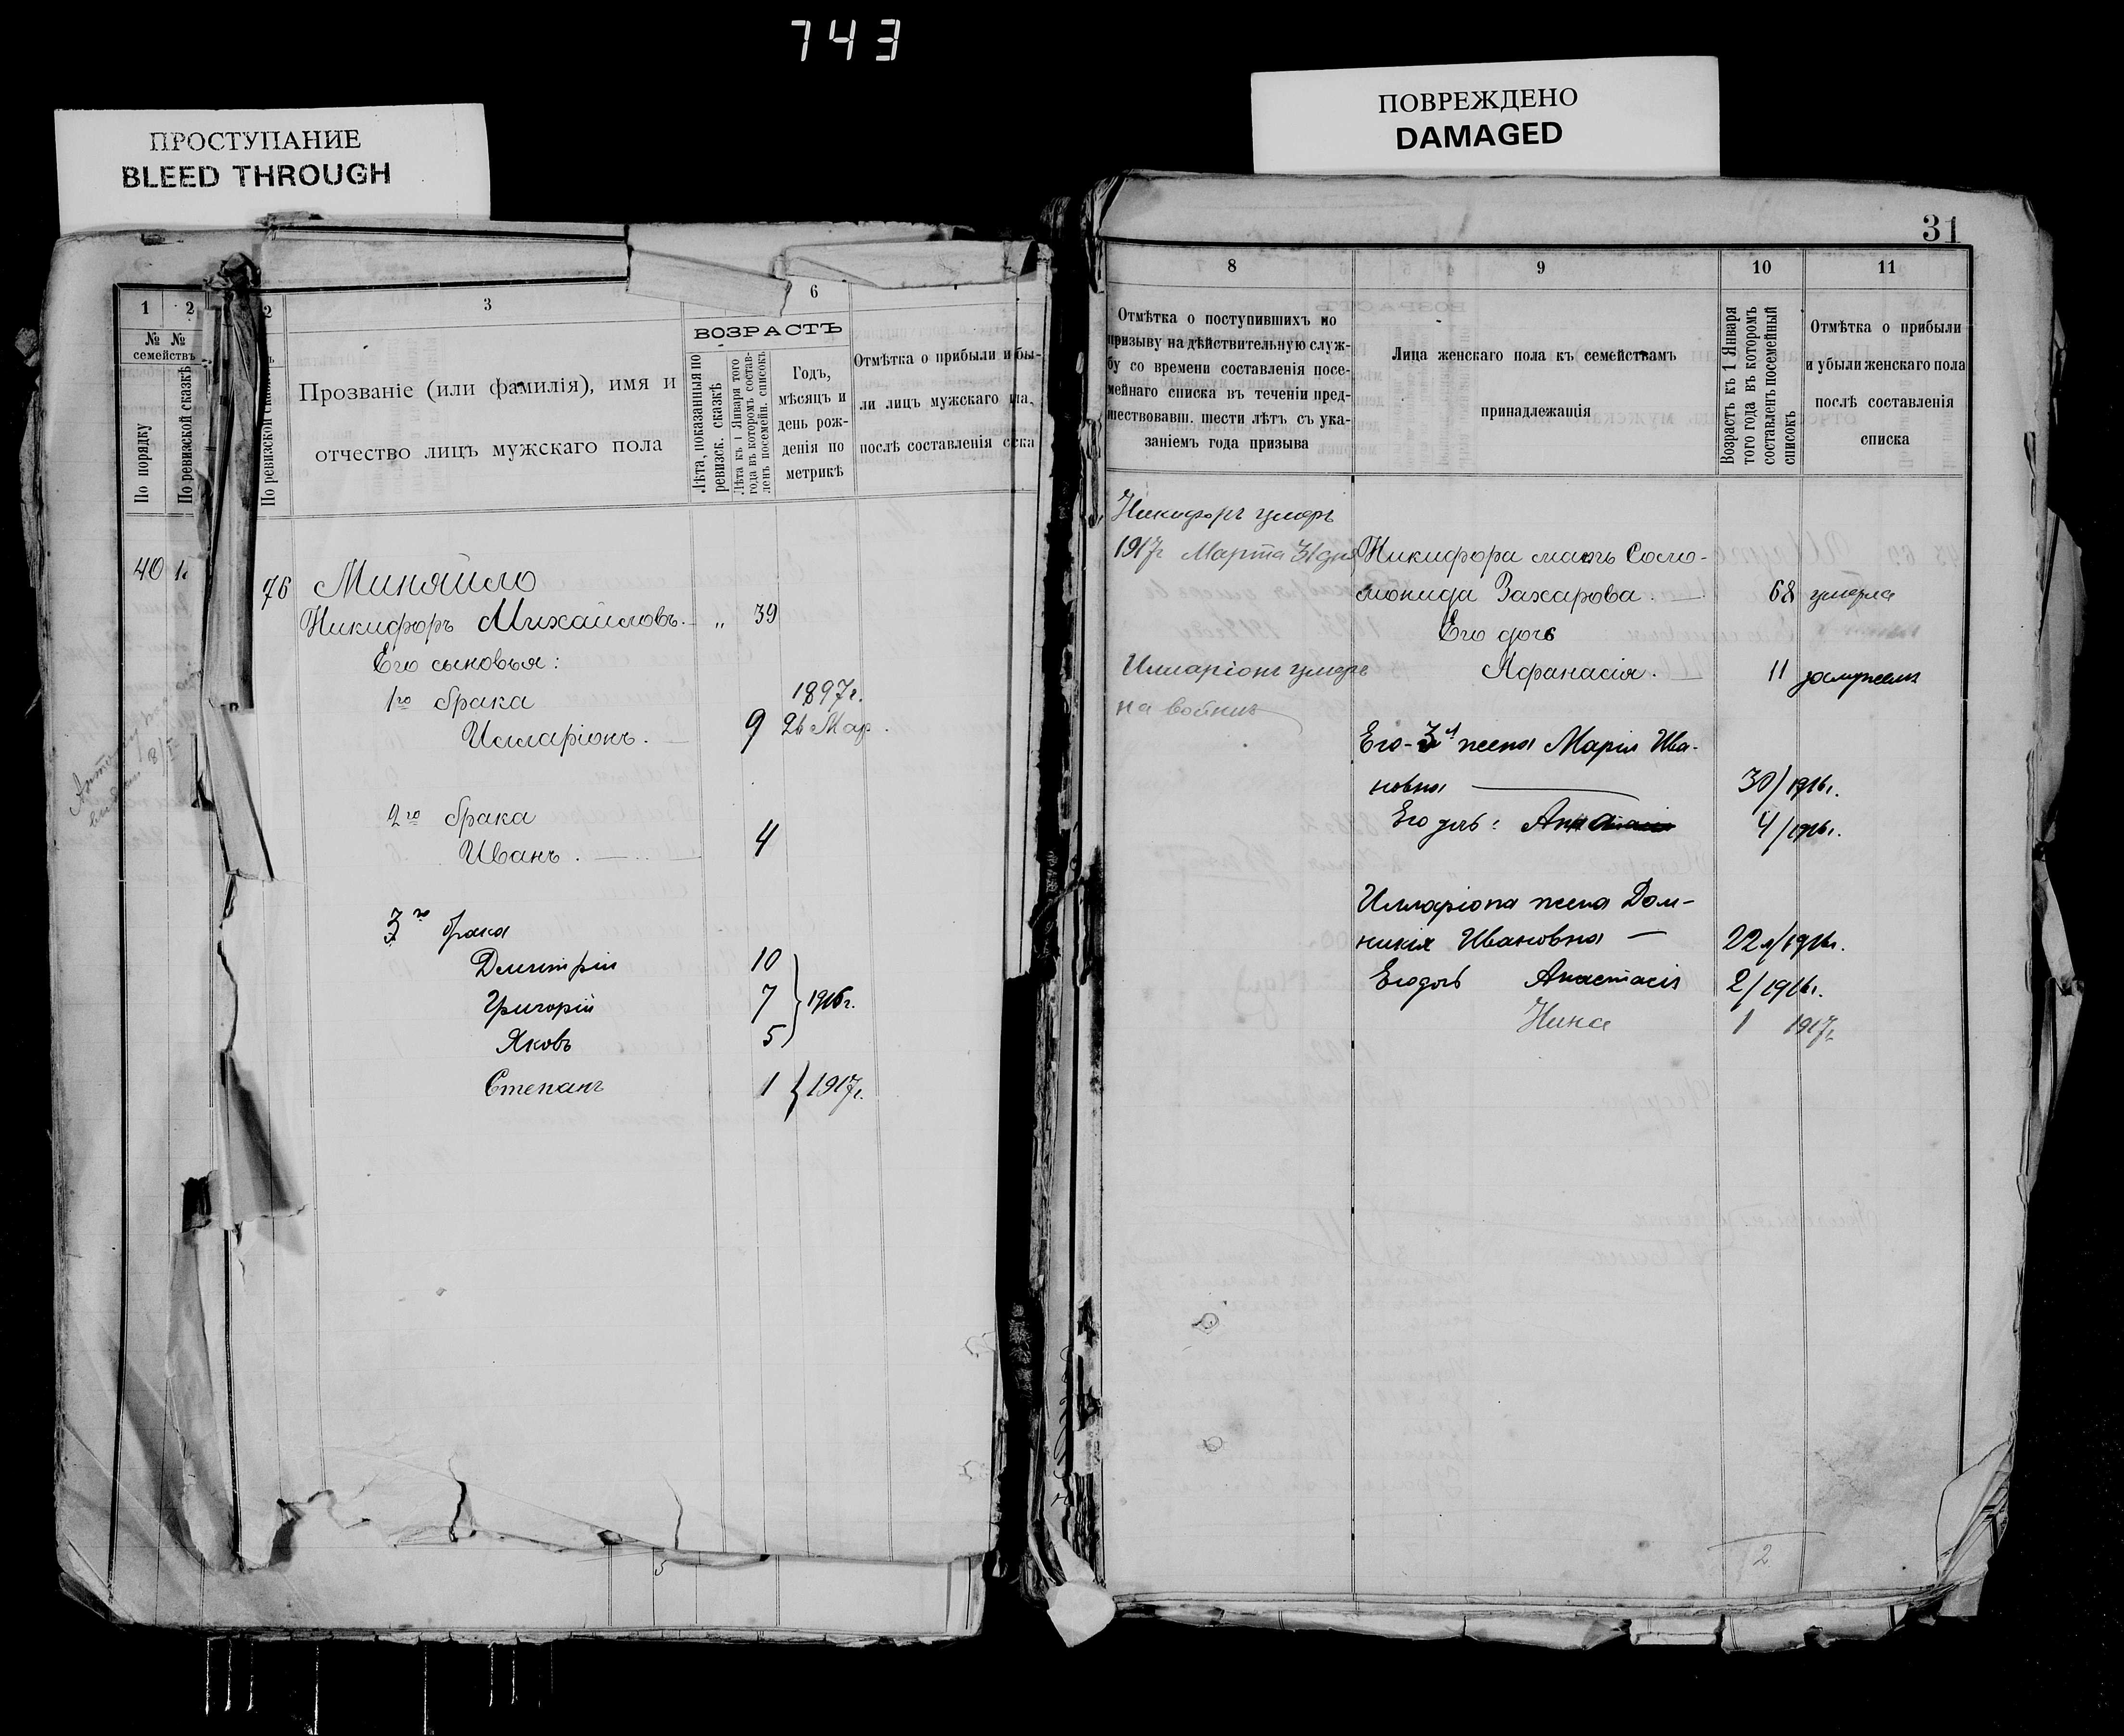 743
ПРОСТУПАНИЕ
BLEED THROUGH
ПОВРЕЖДЕНО
DAMAGED
31
1
2
2
3
6
№ №
семействъ
По порядку
По ревизской сказкѣ
По ревизской
Прозваніе (или фамилія), имя и
отчество лицъ мужскаго пола
ВОЗРАСТЪ
Лѣта, показанныя по
ревизск. сказкѣ
Лѣта къ 1 Января того
года въ которомъ состав-
ленъ посемейн. списокъ
Годъ,
мѣсяцъ и
день рож-
денія по
метрикѣ
Отмѣтка о прибыли и бы-
ли лицъ мужскаго
послѣ составленія
40
76 Миняйло
Никифоръ Михайловъ. „ 39
Его сыновья:
1го брака 1897г.
Илларіонъ. 9 26 Мар.
2го брака
Иванъ. 4
3го брака
Дмитрій 10
Григорій 7 1916г.
Яковъ 5
Степанъ 1 1917г.
5
8
9
10
11
Отмѣтка о поступившихъ по
призыву на дѣйствительную служ-
бу со времени составленія посе-
мейнаго списка въ теченіи пред-
шествовавш. шести лѣтъ съ ука-
заніемъ года призыва
Лица женскаго пола къ семействамъ
принадлежащія
Возрастъ къ 1 Января
того года въ которомъ
составленъ посемейный
списокъ
Отмѣтка о прибыли
и убыли женскаго пола
послѣ составленія
списка
Никифоръ умеръ
1917г Марта 31 дня
Илларіонъ умеръ
на войнѣ
Никифора мать Соло-
монида Захарова. 68 умерла
Его дочь
Афанасія. 11 замужемъ
Его 3я жена Марія Ива-
новна 30/1916г.
Его дочь: Анна 4/1916г.
Илларіона жена Дом-
никія Ивановна — 22 л/1916г.
Его дочь Анастасія 2/1916г.
Нина 1 1917г
2